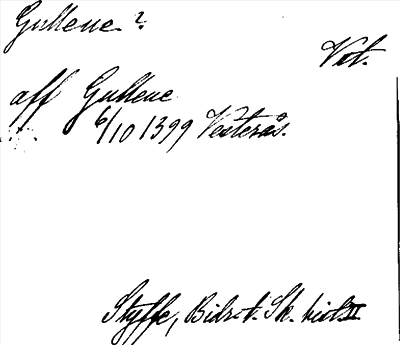 Gullene ?
Vst.
aff Gullene
6/10 1399 Vesterås.
Styffe, Bidr. t. Sk. hist. II